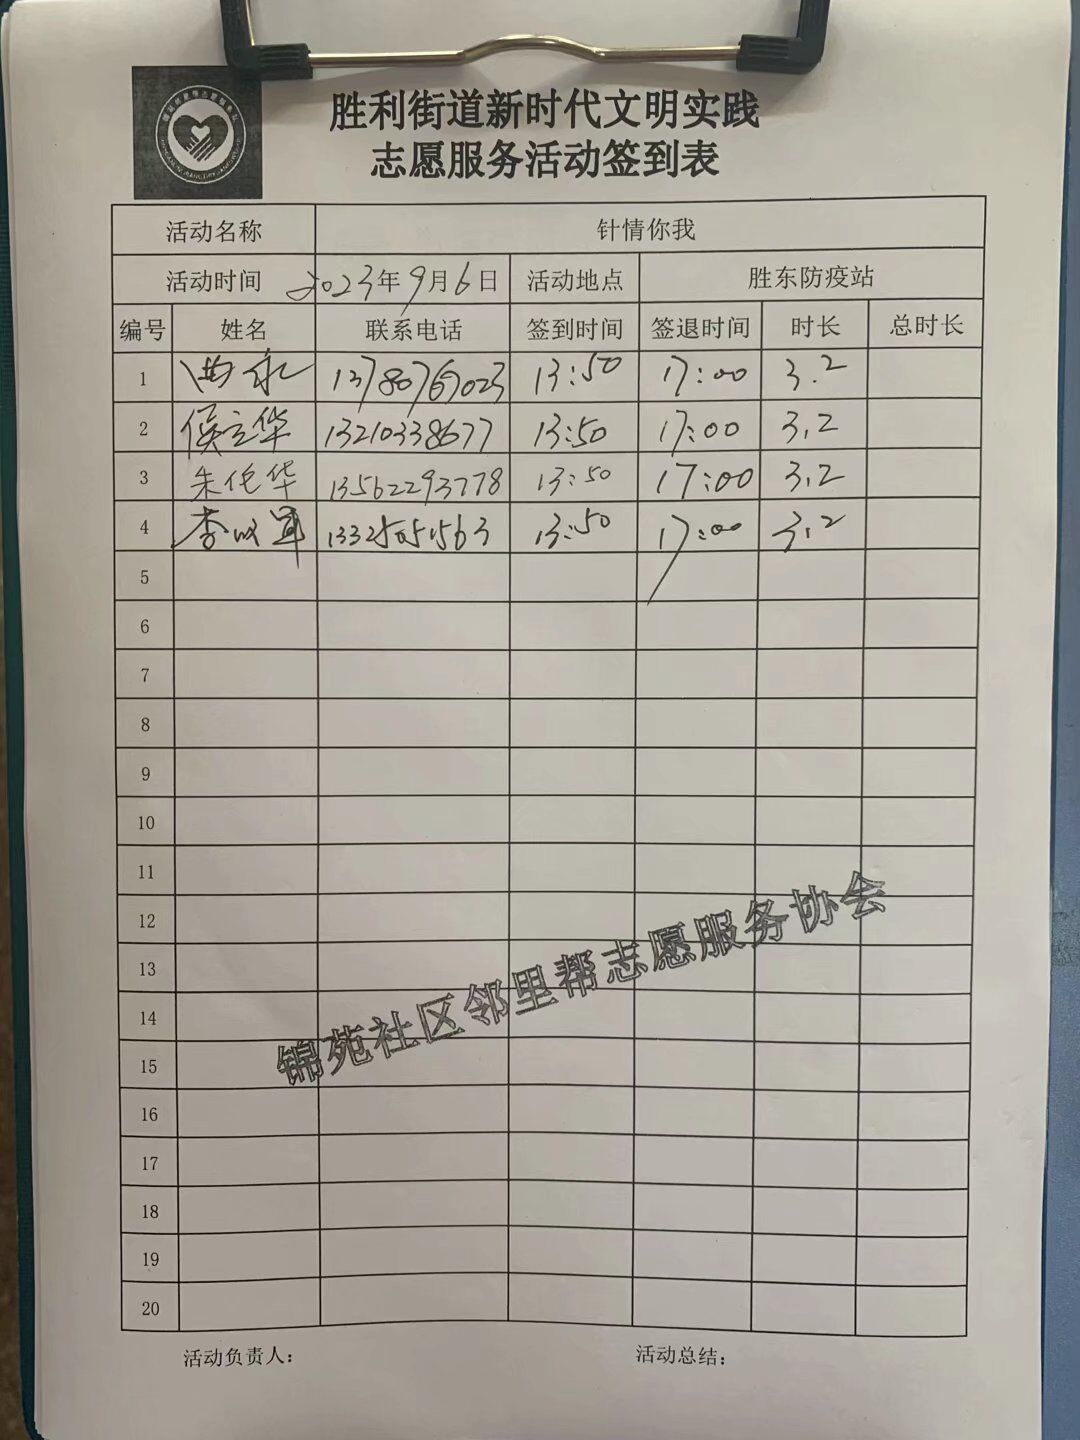 胜利街道新时代文明实践
志愿服务活动签到表
活动名称 针情你我
活动时间 2023年9月6日 活动地点 胜东防疫站
编号 姓名 联系电话 签到时间 签退时间 时长 总时长
1 曲永 13780769023 13:50 17:00 3.2
2 侯立华 13210338677 13:50 17:00 3.2
3 朱伦华 13562293778 13:50 17:00 3.2
4 李 13:50 17:00 3.2
5
6
7
8
9
10
11
12
13
14
15
16
17
18
19
20
锦苑社区邻里帮志愿服务协会
活动负责人： 活动总结：